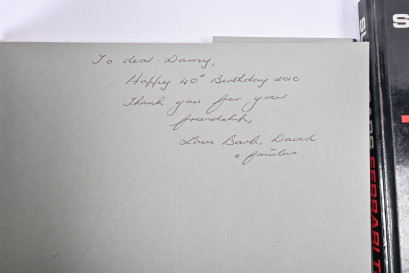 To dear Danny,
Happy 40th Birthday 2010
Thank you for your
friendship,
Love Barb, David
+ families
FERRARI T
S